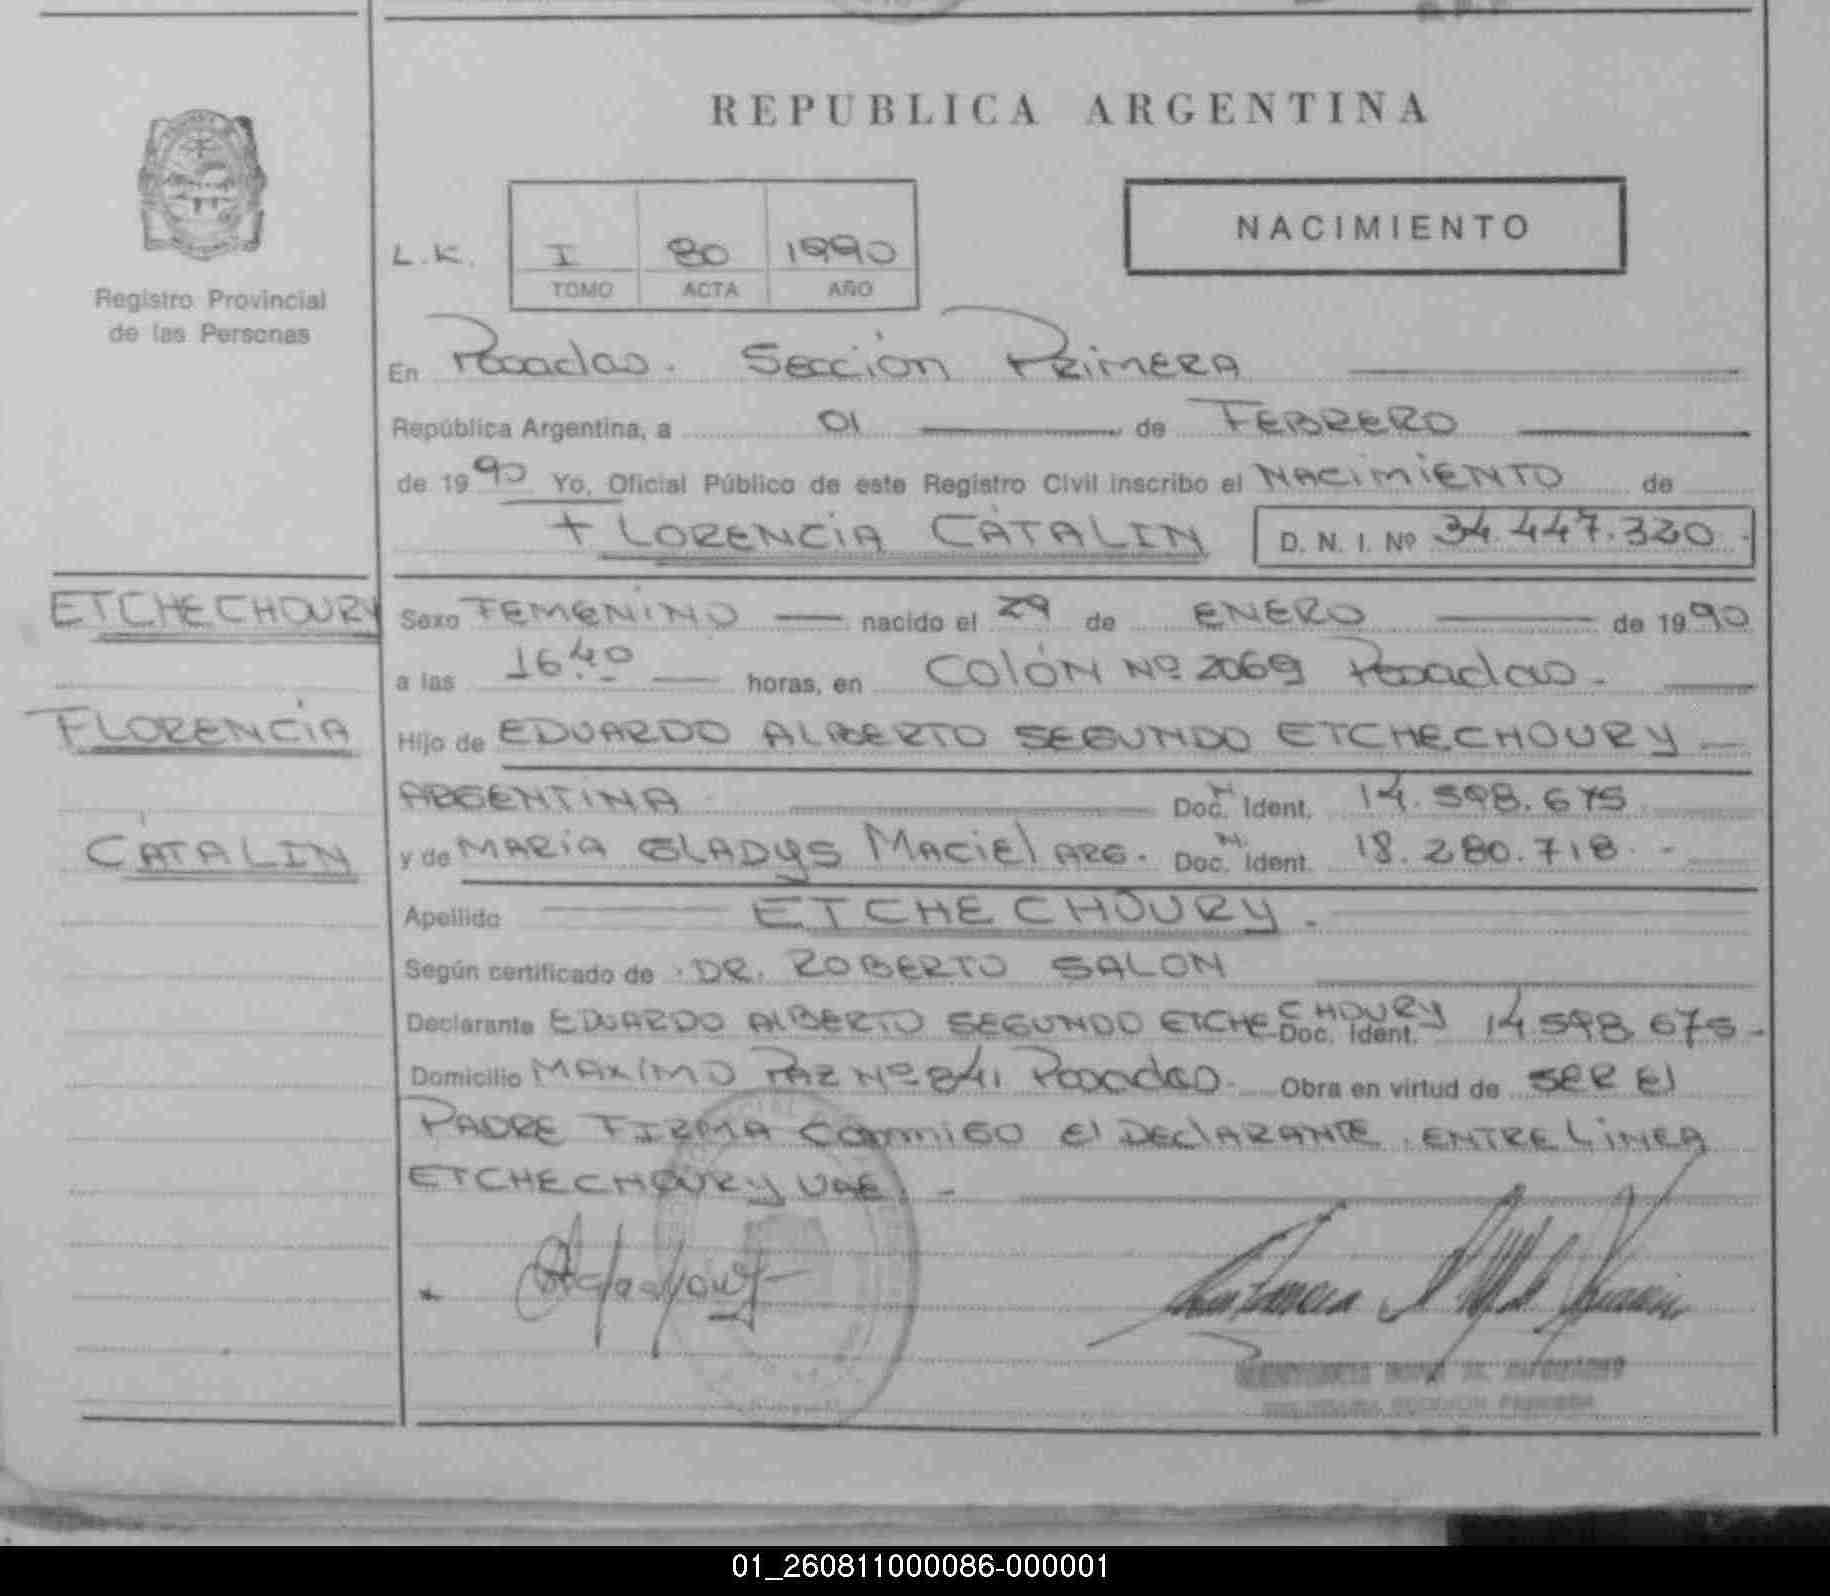 REPUBLICA ARGENTINA
NACIMIENTO
L.K. I 80 1990
TOMO ACTA AÑO
Registro Provincial
de las Personas
En Posadas. Sección Primera
República Argentina, a 01 de FEBRERO
de 1990 Yo, Oficial Público de este Registro Civil inscribo el NACIMIENTO de
FLORENCIA CATALIN D. N. I. Nº 34.447.320.
ETCHECHOURY
Sexo FEMENINO nacido el 29 de ENERO de 1990
a las 16.40 horas, en COLÓN Nº 2069 Posadas.
FLORENCIA
Hijo de EDUARDO ALBERTO SEGUNDO ETCHECHOURY
ARGENTINA Doc. N. Ident. 14.598.675
CATALIN
y de MARÍA GLADYS MACIEL ARG. Doc. N. Ident. 18.280.718.-
Apellido ETCHECHOURY.
Según certificado de DR. ROBERTO SALON
Declarante EDUARDO ALBERTO SEGUNDO ETCHECHOURY Doc. Ident. 14.598.675-
Domicilio MAXIMO PAZ Nº 841 Posadas. Obra en virtud de SER El
PADRE FIRMA CONMIGO El DECLARANTE. ENTRE LINEA
ETCHECHOURY VALE.-
01_260811000086-000001